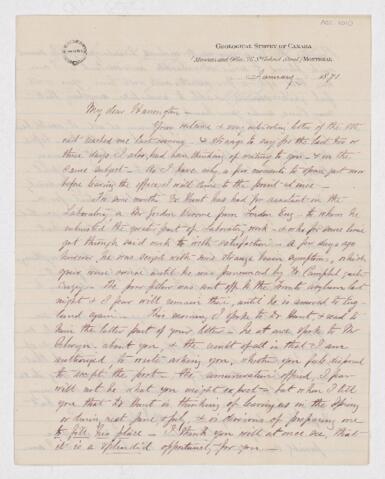 GEOLOGICAL SURVEY OF CANADA
MONTREAL
January 1871
My dear Harrington –
Your welcome & very interesting letter of the
inst reached me last evening – & strange to say for the last two or
three days I also, had been thinking of writing to you – & on the
same subject – As I have only a few moments to spare just now
before leaving the office I will come to the point at once –
For some months Dr Hunt has had for assistant in the
Laboratory a Mr Gordon Broome from London Eng – to whom he
entrusted the greater part of Laboratory work – & who for some time
got through said work to his satisfaction – A few days ago
however, he was seized with most strange brain symptoms, which
grew worse until he was pronounced by Dr Campbell quite
crazy – The poor fellow was sent off to the Toronto asylum last
night & I fear will remain there, until he is removed to Eng-
land again – This morning I spoke to Dr Hunt & read to
him the latter part of your letter – he at once spoke to Mr
Selwyn about you, & the result of all is that I am
authorized to write asking you, whether you feel disposed
to accept the post – The remuneration offered, I fear
will not be what you might expect – but when I tell
you that Dr Hunt is thinking of leaving us in the Spring
or during next June or July, & is desirous of preparing one
to fill his place – I think you will at once see, that
it is a splendid opportunity for you –